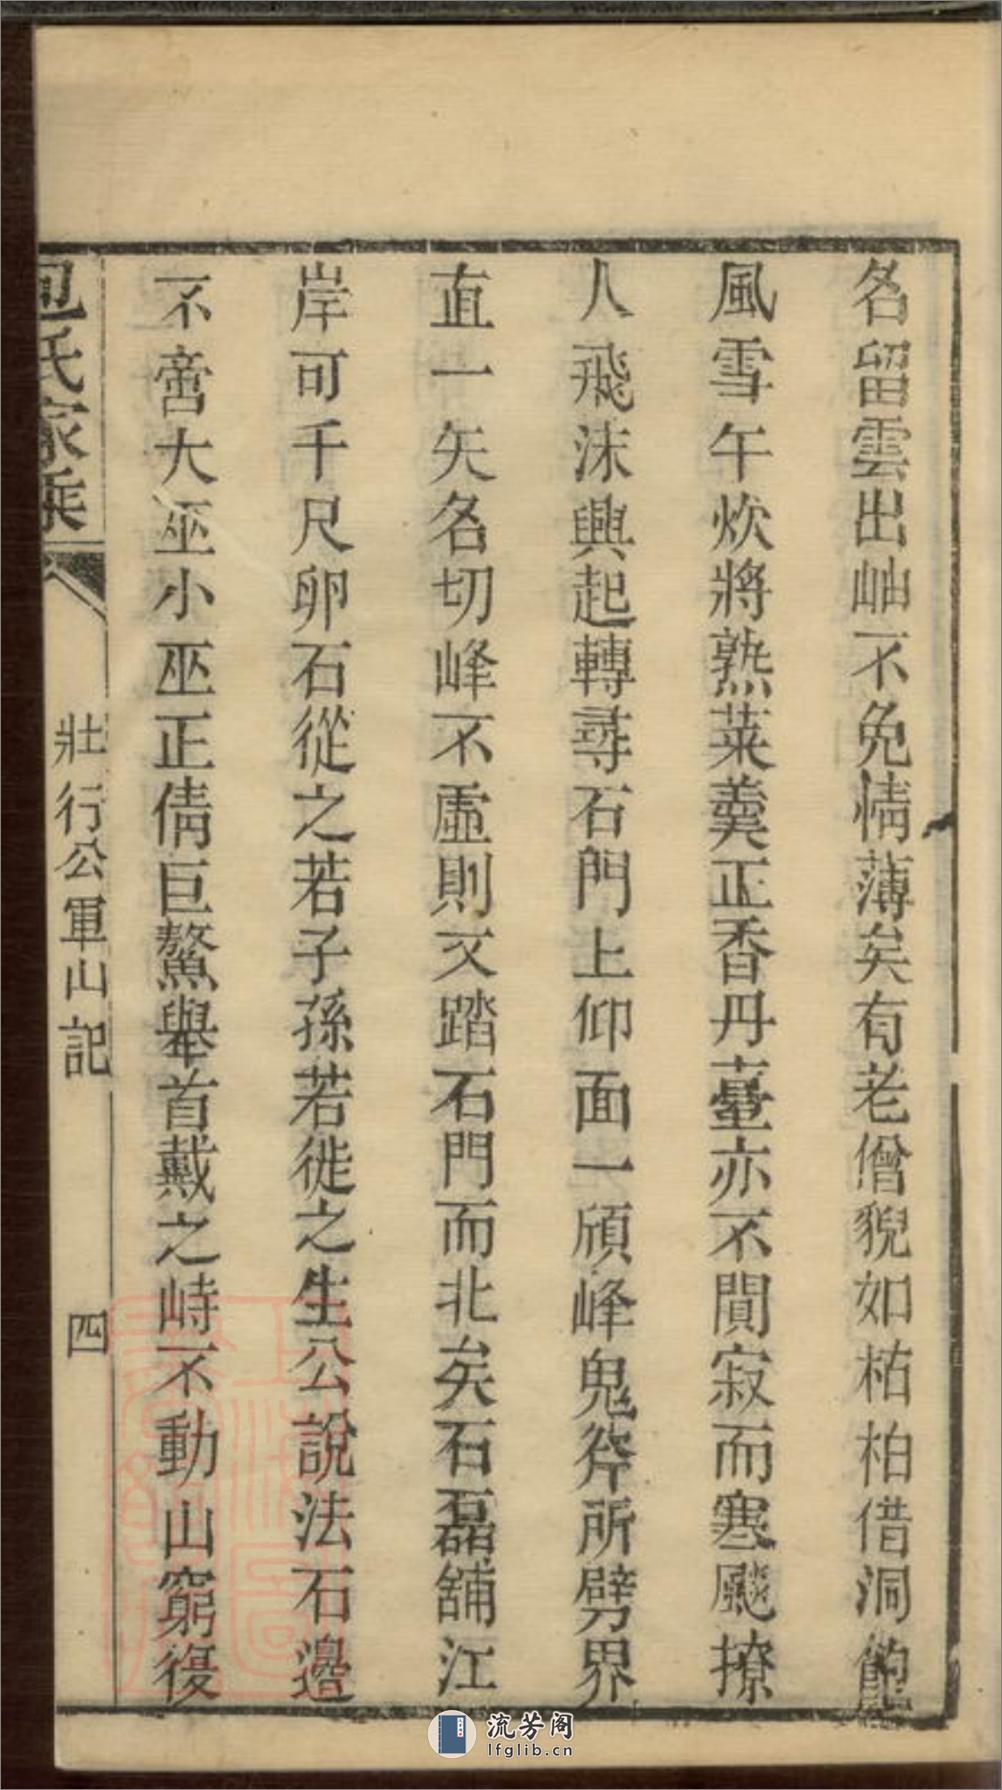 名留雲出岫不免情薄矣有老僧貌如枯柏借洞飽
風雪午炊將熟菜羹正香丹臺亦不閴寂而寒飈撩
人飛沫興起轉尋石門上仰面一頎峰鬼斧所劈界
直一矢名切峰不虛則又踏石門而北矣石磊鋪江
岸可千尺卵石從之若子孫若徙之生公說法石邊
不啻大巫小巫正倩巨鰲舉首戴之峙不動山窮復
包氏家乘
壯行公軍山記
四
流芳阁
lfglib.cn